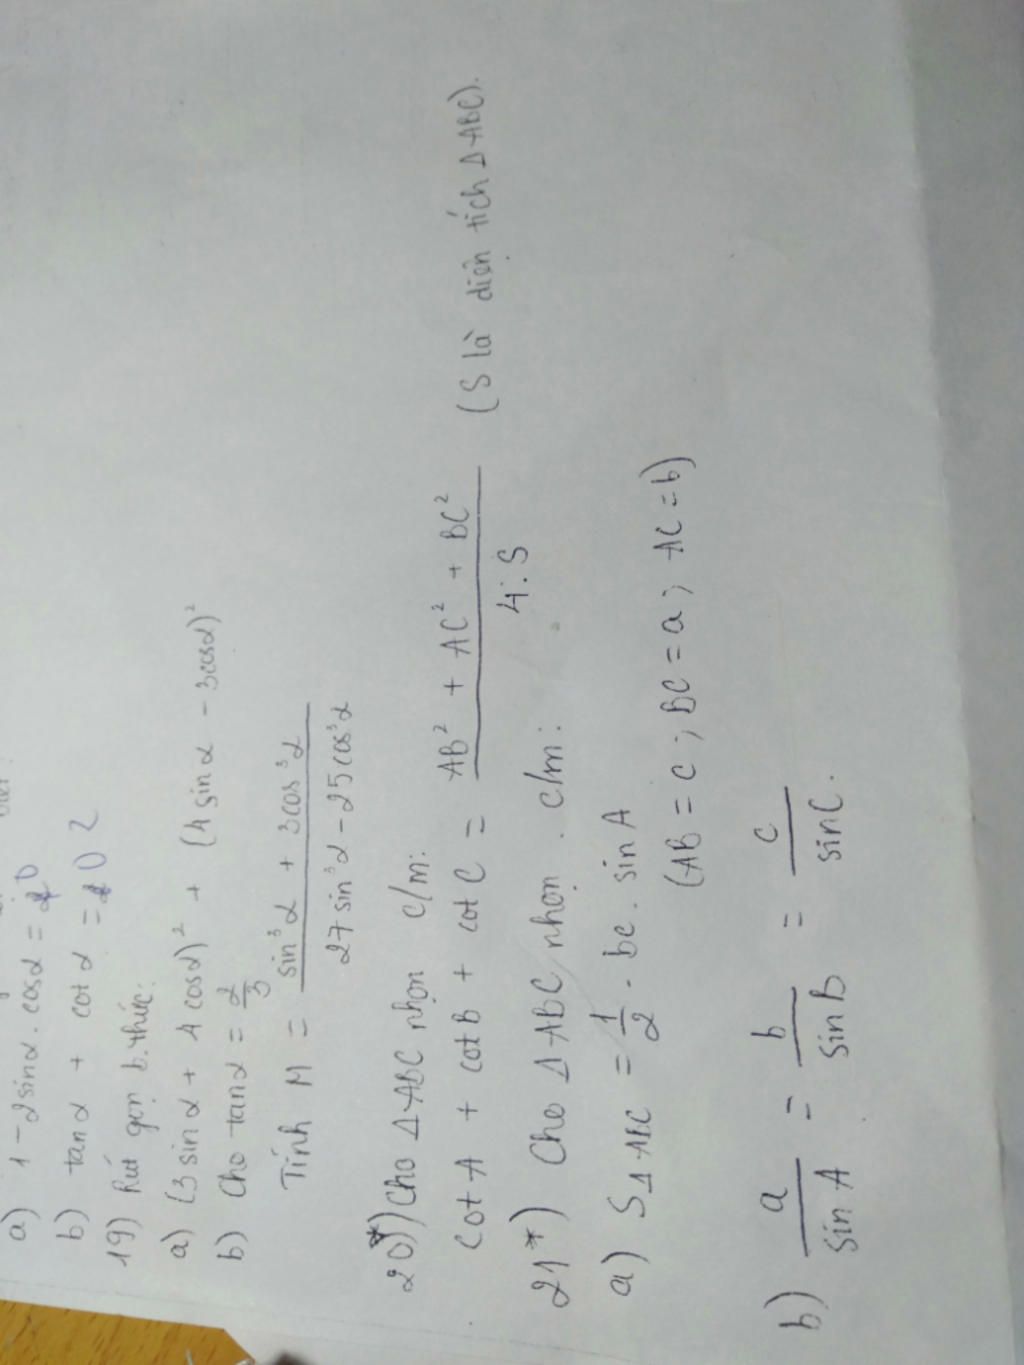 a) 1 - 2sinα . cosα = 0
b) tanα + cotα = 2
19) Rút gọn b.thức:
a) (3sinα + 4cosα)² + (4sinα - 3cosα)²
b) Cho tanα = 2/3
Tính M = (sin³α + 3cos³α)/(27sin³α - 25cos³α)
20*) Cho ΔABC nhọn c/m:
cotA + cotB + cotC = (AB² + AC² + BC²)/(4.S) (S là diện tích ΔABC).
21*) Cho ΔABC nhọn. c/m:
a) SΔABC = 1/2 . bc. sinA
(AB = c ; BC = a ; AC = b)
b) a/sinA = b/sinB = c/sinC.